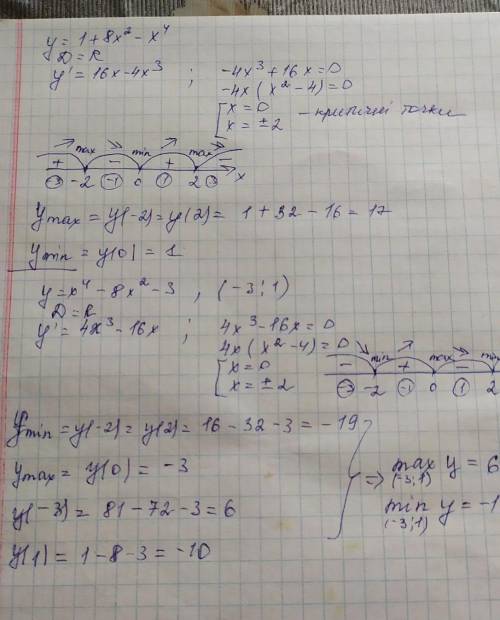 y = 1 + 8x² - x⁴
D = R
y' = 16x - 4x³ ; -4x³ + 16x = 0
-4x (x² - 4) = 0
[ x = 0
x = ±2 - критичні точки
max min max
+ - + -
-3 -2 -1 0 1 2 3 x
y max = y(-2) = y(2) = 1 + 32 - 16 = 17
y min = y(0) = 1
y = x⁴ - 8x² - 3 , (-3; 1)
D = R
y' = 4x³ - 16x ; 4x³ - 16x = 0
4x (x² - 4) = 0
[ x = 0
x = ±2
min max min
- + - +
-3 -2 -1 0 1 2
y min = y(-2) = y(2) = 16 - 32 - 3 = -19
y max = y(0) = -3
y(-3) = 81 - 72 - 3 = 6
y(1) = 1 - 8 - 3 = -10
=> max y = 6
(-3; 1)
min y = -1
(-3; 1)